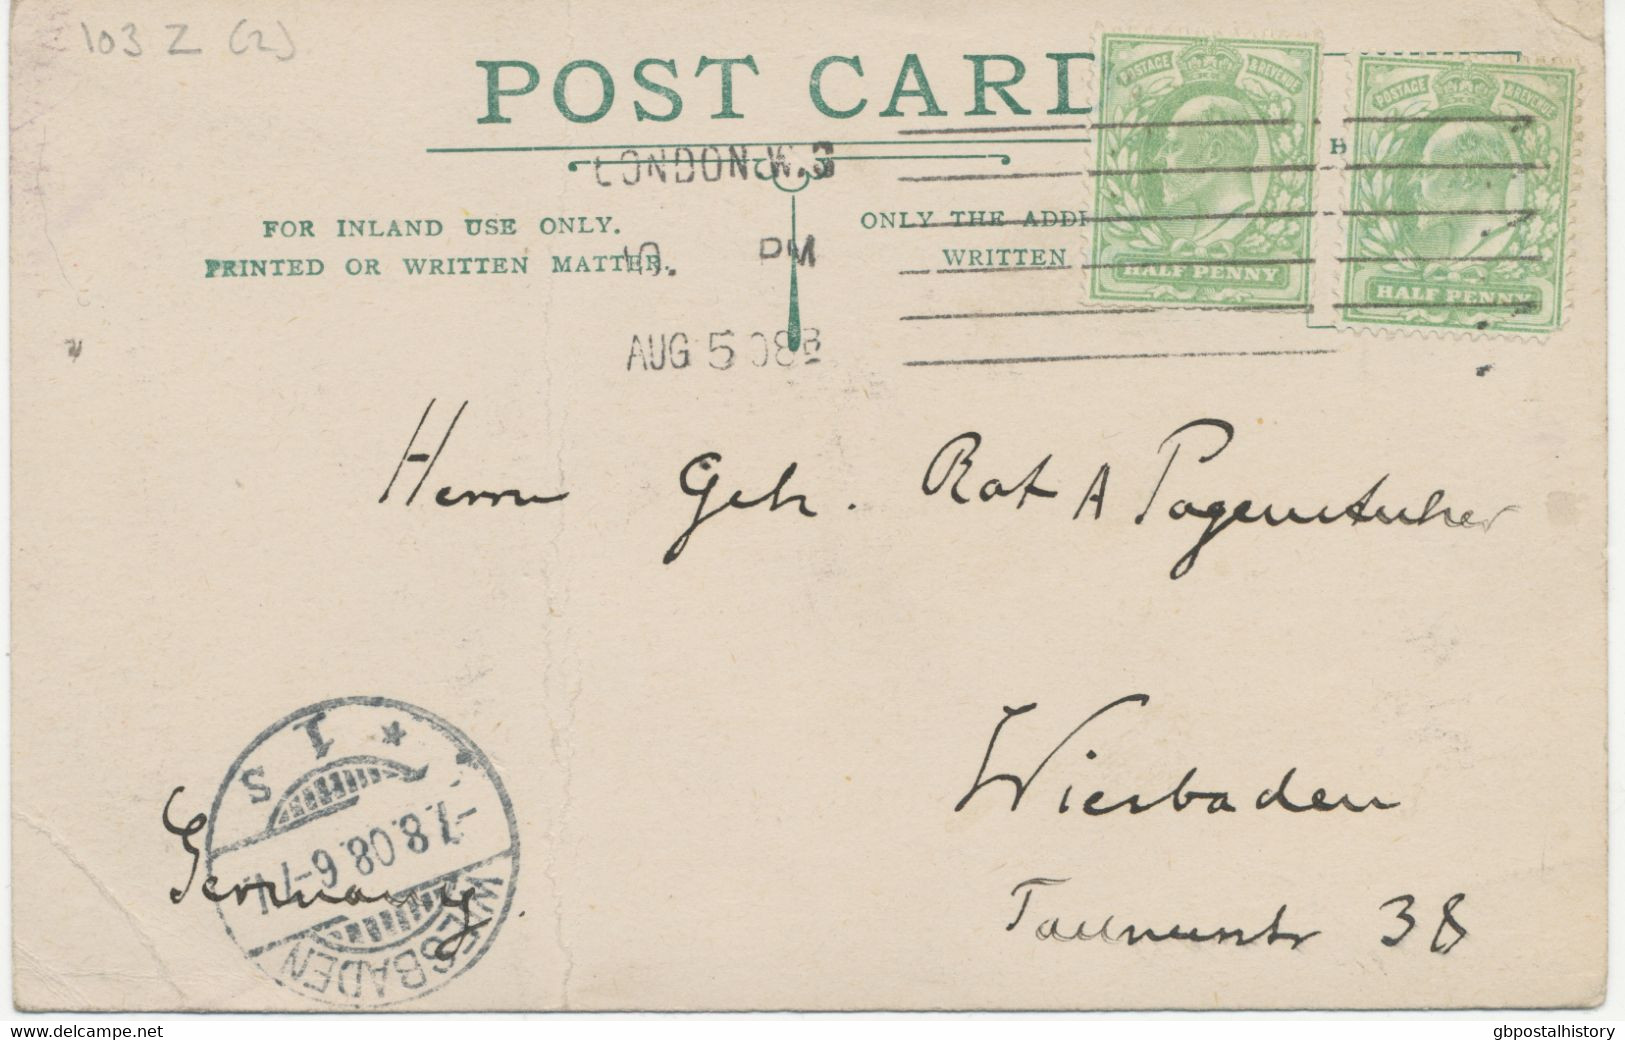 103 Z (2)
POST CARD
POSTAGE & REVENUE
HALF PENNY
POSTAGE & REVENUE
HALF PENNY
LONDON.W.
PM
AUG 5 08
FOR INLAND USE ONLY.
PRINTED OR WRITTEN MATTER.
ONLY THE ADD
WRITTEN
H
Herrn Geh. Rat A Pagenstecher
Wiesbaden
Taunusstr 38
Germany.
WIESBADEN
-7.8.08.6-7
* 1 s
www.delcampe.net
gbpostalhistory